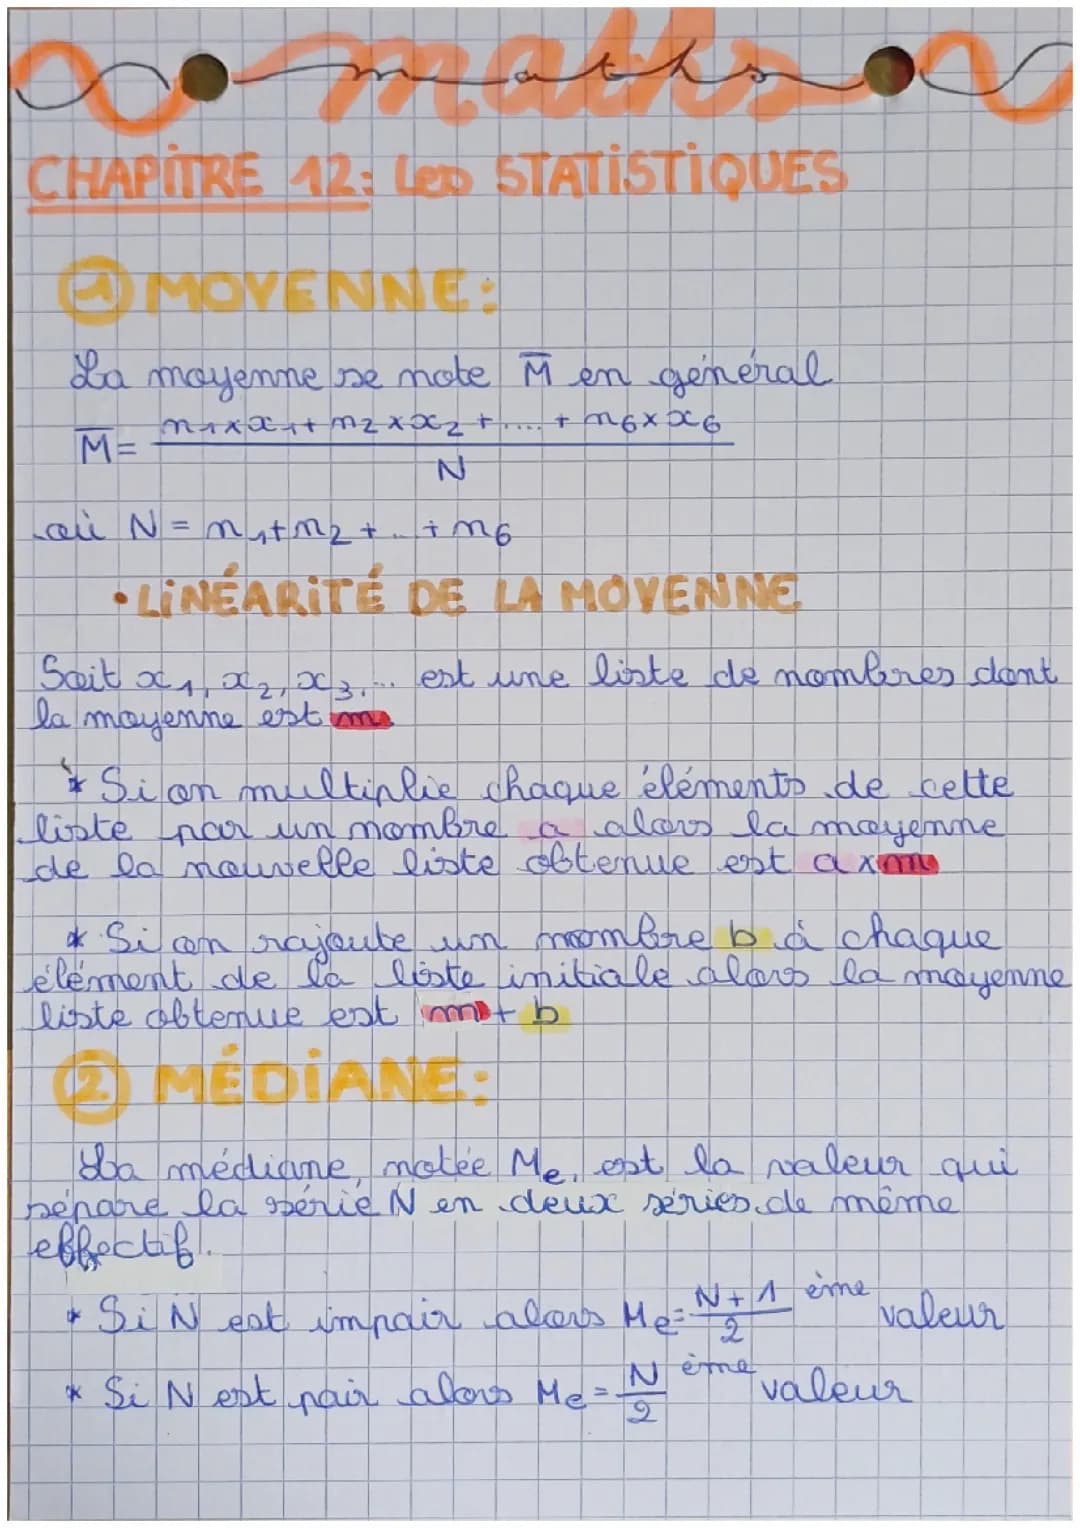 maths
CHAPITRE 12: Les STATISTIQUES
① MOYENNE:
La moyenne se note M̅ en général
M̅ = (n₁×x₁+n₂×x₂+....+n₆×x₆)/N
où N = n₁+n₂+...+n₆
• LINÉARITÉ DE LA MOYENNE
Soit x₁, x₂, x₃,... est une liste de nombres dont
la moyenne est m
* Si on multiplie chaque éléments de cette
liste par un nombre a alors la moyenne
de la nouvelle liste obtenue est a×m
* Si on rajoute un nombre b à chaque
élément de la liste initiale alors la moyenne
liste obtenue est m+b
② MÉDIANE:
La médiane, notée Me, est la valeur qui
sépare la série N en deux séries de même
effectif.
* Si N est impair alors Me = (N+1)/2 ème valeur
* Si N est pair alors Me = N/2 ème valeur